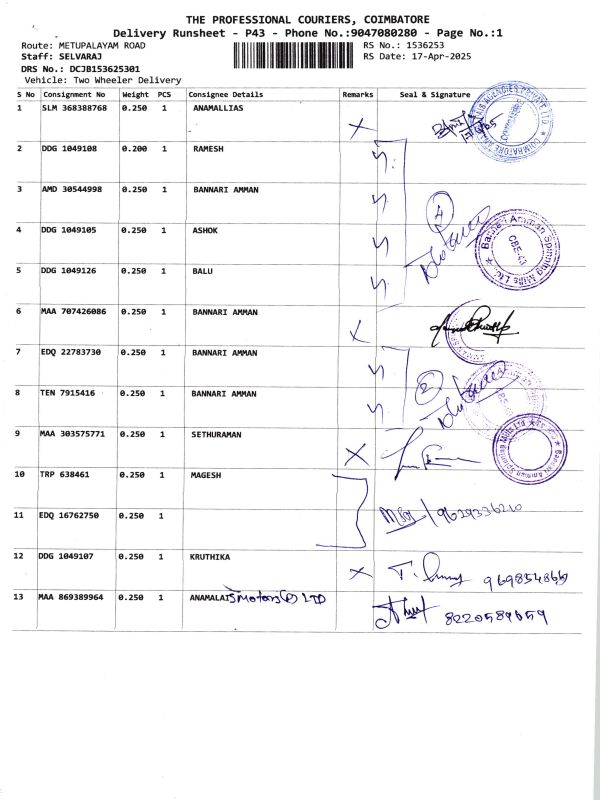 THE PROFESSIONAL COURIERS, COIMBATORE
Delivery Runsheet - P43 - Phone No.:9047080280 - Page No.:1
Route: METUPALAYAM ROAD
RS No.: 1536253
Staff: SELVARAJ
RS Date: 17-Apr-2025
DRS No.: DCJB153625301
Vehicle: Two Wheeler Delivery
S No Consignment No Weight PCS Consignee Details Remarks Seal & Signature
1 SLM 368388768 0.250 1 ANAMALLIAS
2 DDG 1049108 0.200 1 RAMESH
3 AMD 30544998 0.250 1 BANNARI AMMAN
4 DDG 1049105 0.250 1 ASHOK
4
5 DDG 1049126 0.250 1 BALU
Bannari Amman Spinning Mills Ltd.
CBE-43
6 MAA 707426086 0.250 1 BANNARI AMMAN
7 EDQ 22783730 0.250 1 BANNARI AMMAN
8 TEN 7915416 0.250 1 BANNARI AMMAN
2
9 MAA 303575771 0.250 1 SETHURAMAN
10 TRP 638461 0.250 1 MAGESH
11 EDQ 16762750 0.250 1
12 DDG 1049107 0.250 1 KRUTHIKA
13 MAA 869389964 0.250 1 ANAMALAIS Motors (P) LTD
8220589059